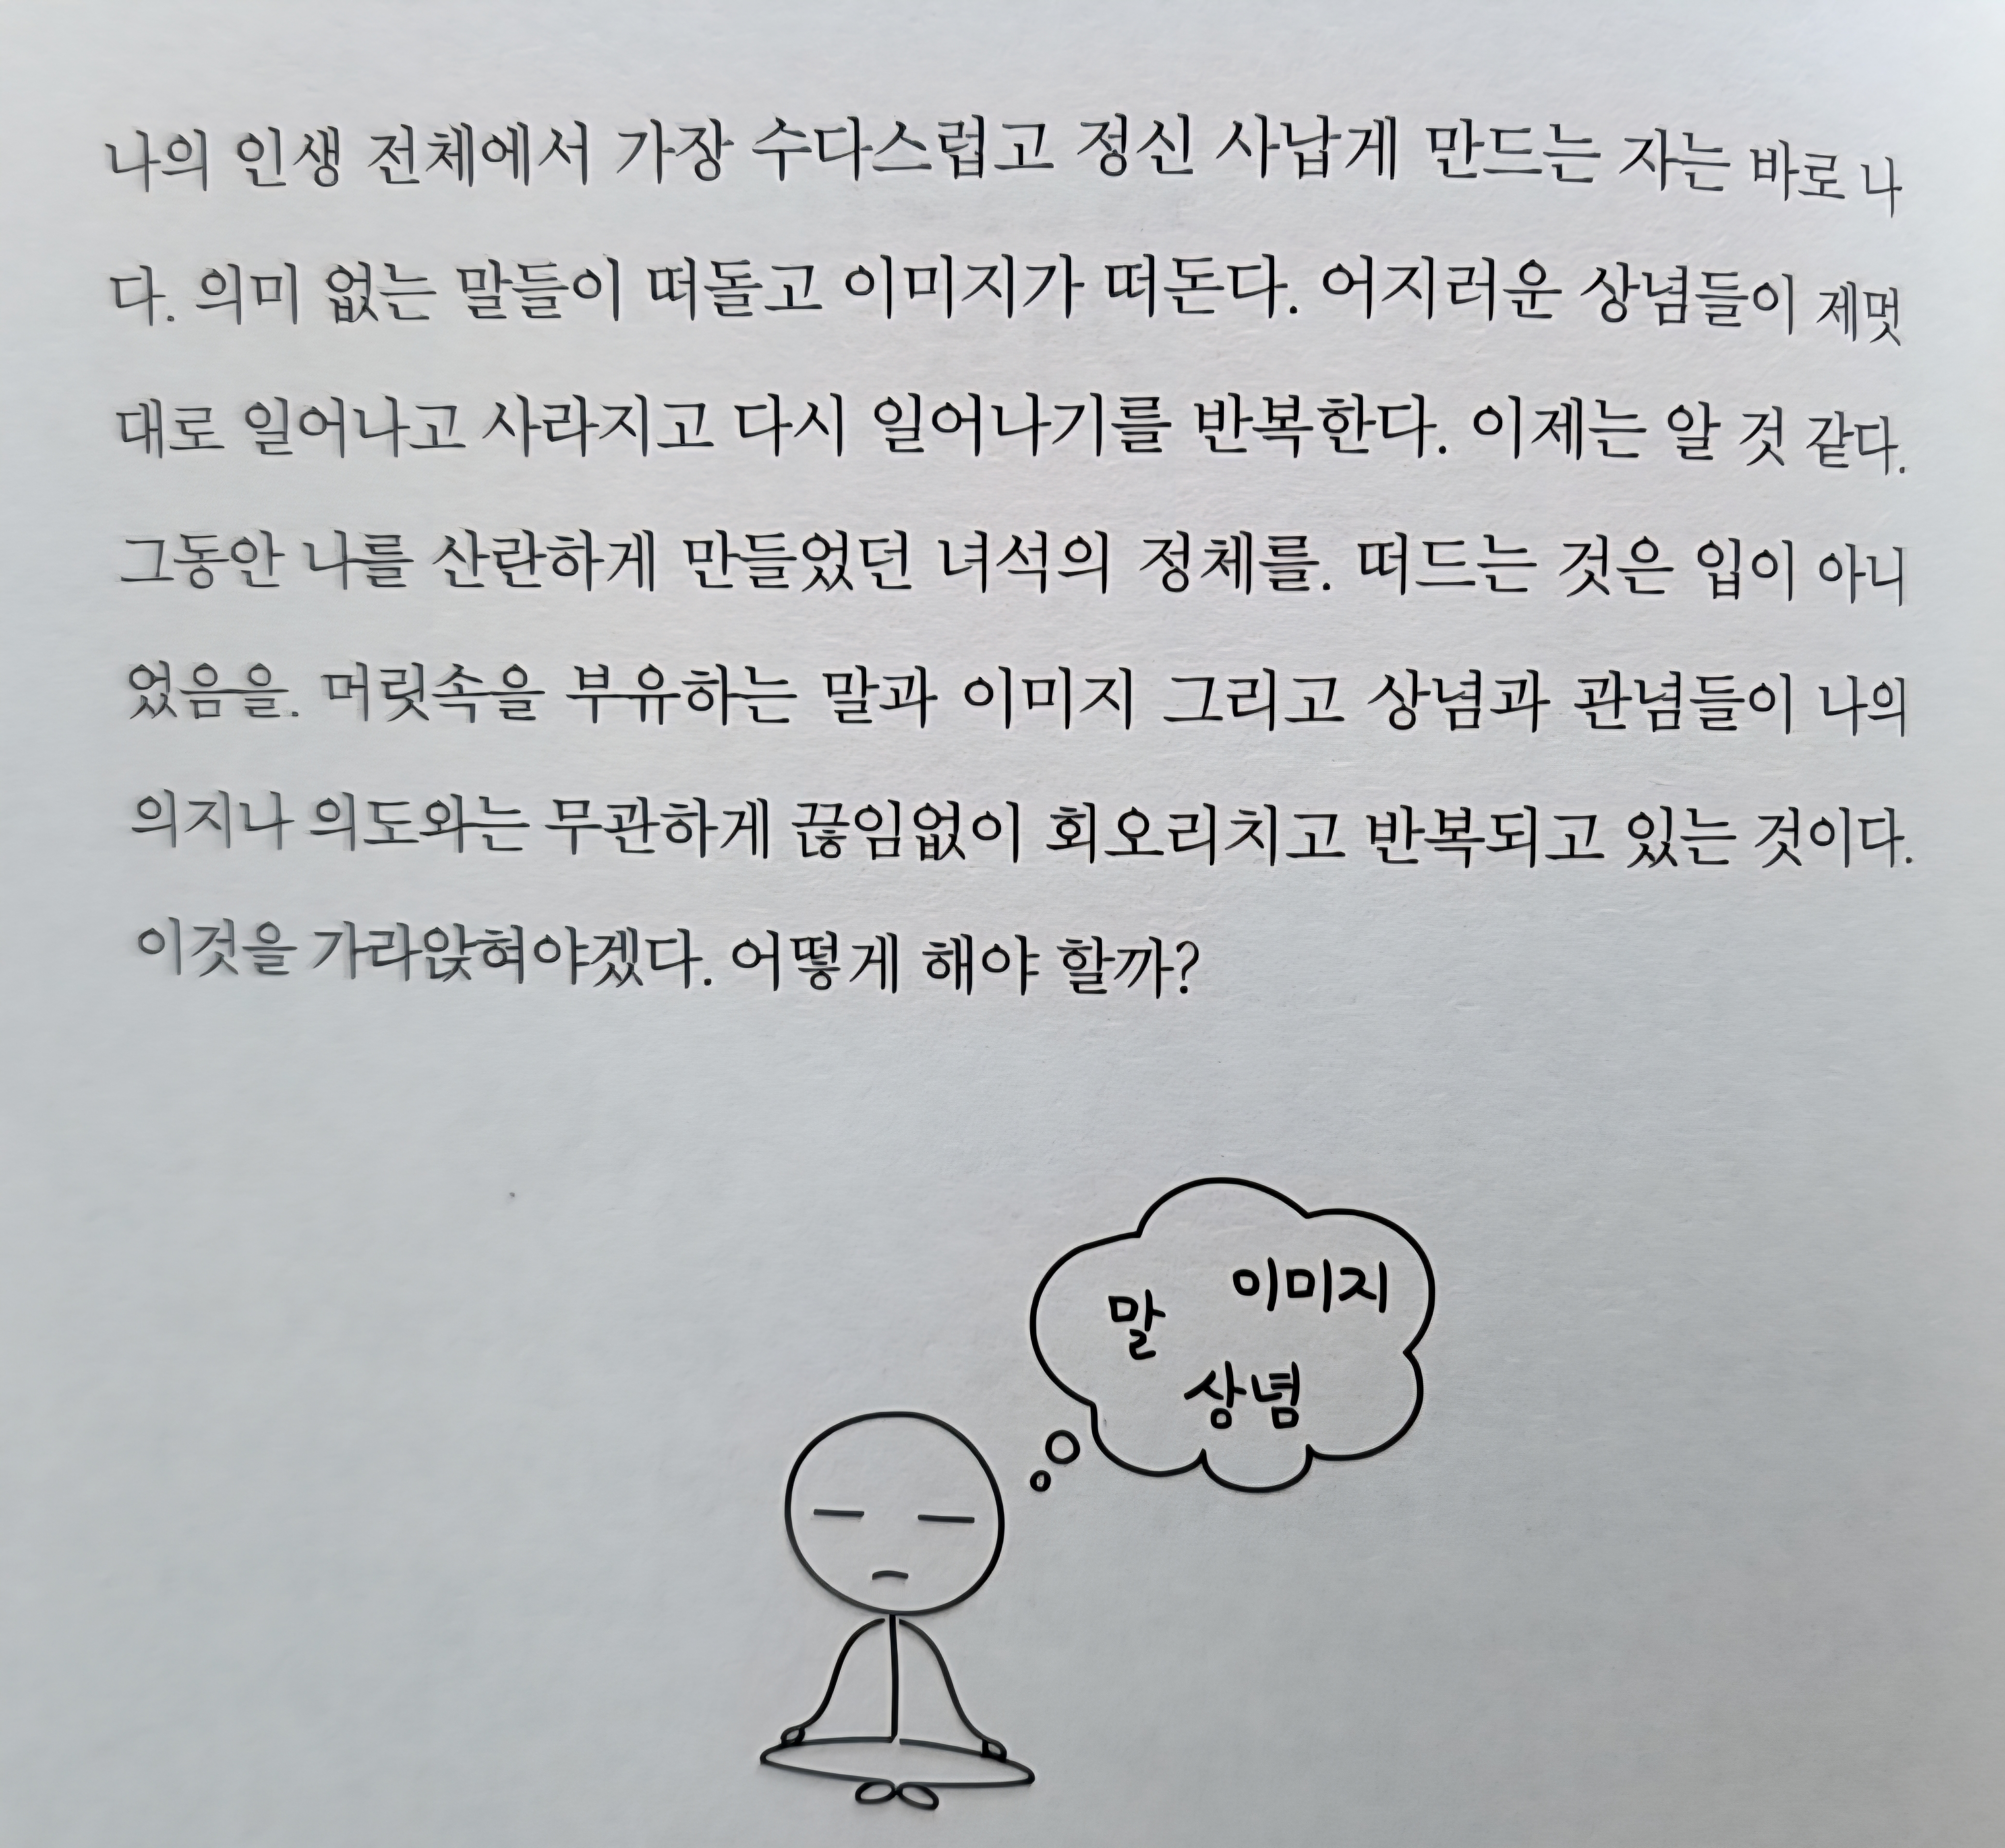 나의 인생 전체에서 가장 수다스럽고 정신 사납게 만드는 자는 바로 나
다. 의미 없는 말들이 떠돌고 이미지가 떠돈다. 어지러운 상념들이 제멋
대로 일어나고 사라지고 다시 일어나기를 반복한다. 이제는 알 것 같다.
그동안 나를 산란하게 만들었던 녀석의 정체를. 떠드는 것은 입이 아니
었음을. 머릿속을 부유하는 말과 이미지 그리고 상념과 관념들이 나의
의지나 의도와는 무관하게 끊임없이 회오리치고 반복되고 있는 것이다.
이것을 가라앉혀야겠다. 어떻게 해야 할까?
말 이미지
상념